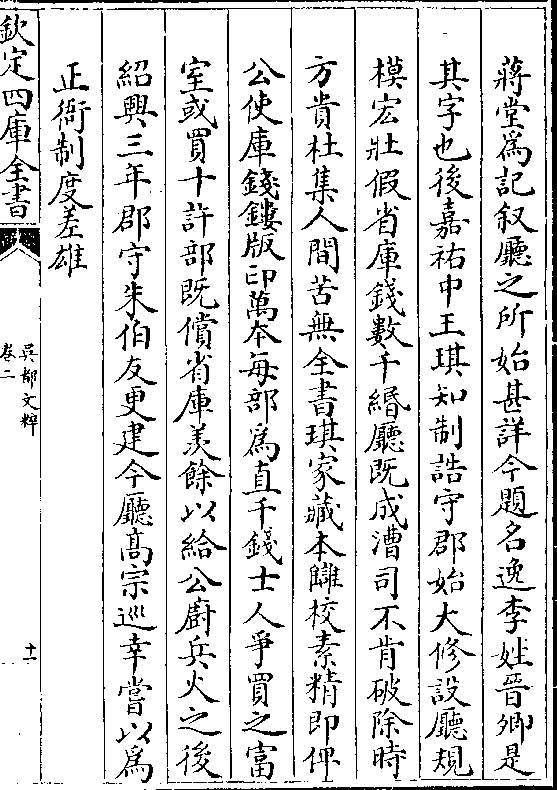 蔣堂爲記叙廳之所始甚詳今題名逸李姓晉卿是
其字也後嘉祐中王琪知制誥守郡始大修設廳規
模宏壯假省庫錢數千緡廳既成漕司不肯破除時
方貴杜集人間苦無全書琪家藏本讎校素精即俾
公使庫錢鏤版印萬本每部爲直千錢士人爭買之富
室或買十許部既償省庫羡餘以給公廚兵火之後
紹興三年郡守朱伯友更建今廳高宗巡幸嘗以爲
正衙制度差雄
欽定四庫全書
吳都文粹
卷二
十一